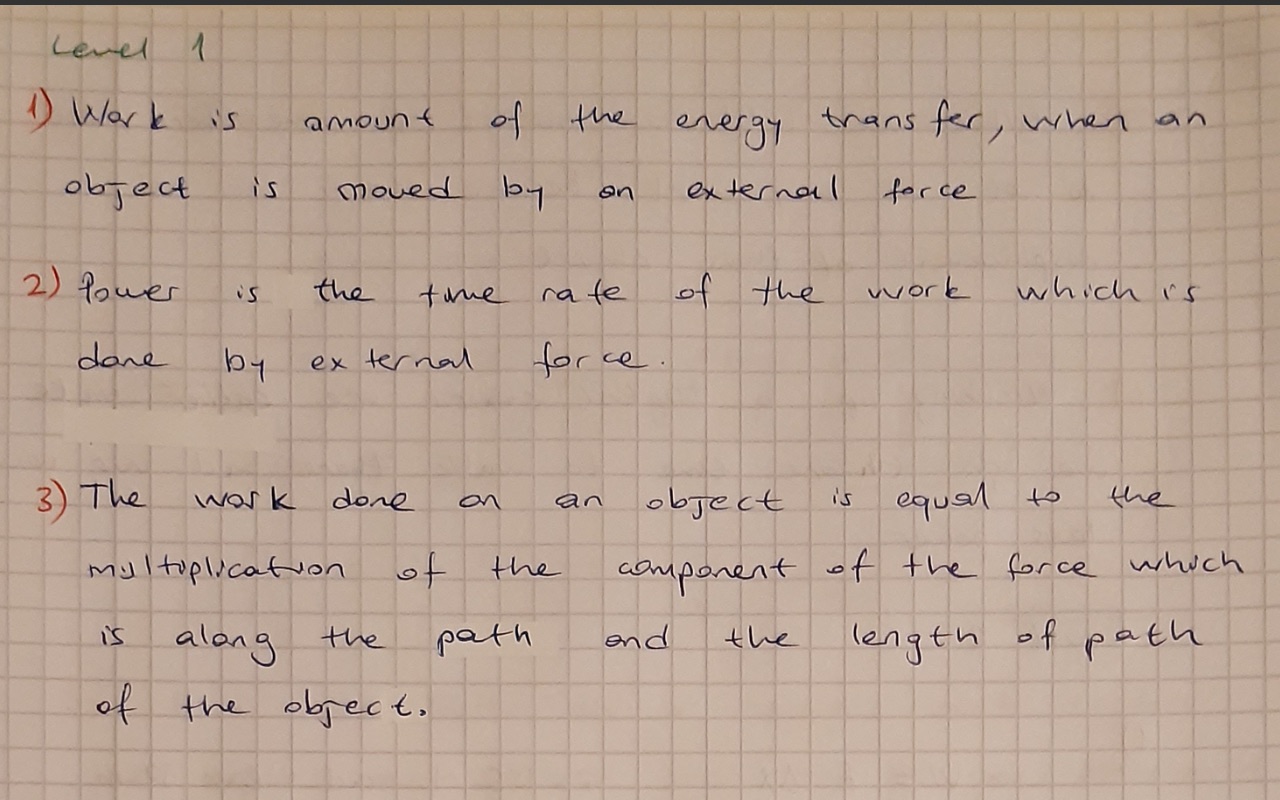 Level 1
1) Work is amount of the energy transfer, when an
object is moved by an external force
2) Power is the time rate of the work which is
done by external force.
3) The work done on an object is equal to the
multiplication of the component of the force which
is along the path and the length of path
of the object.